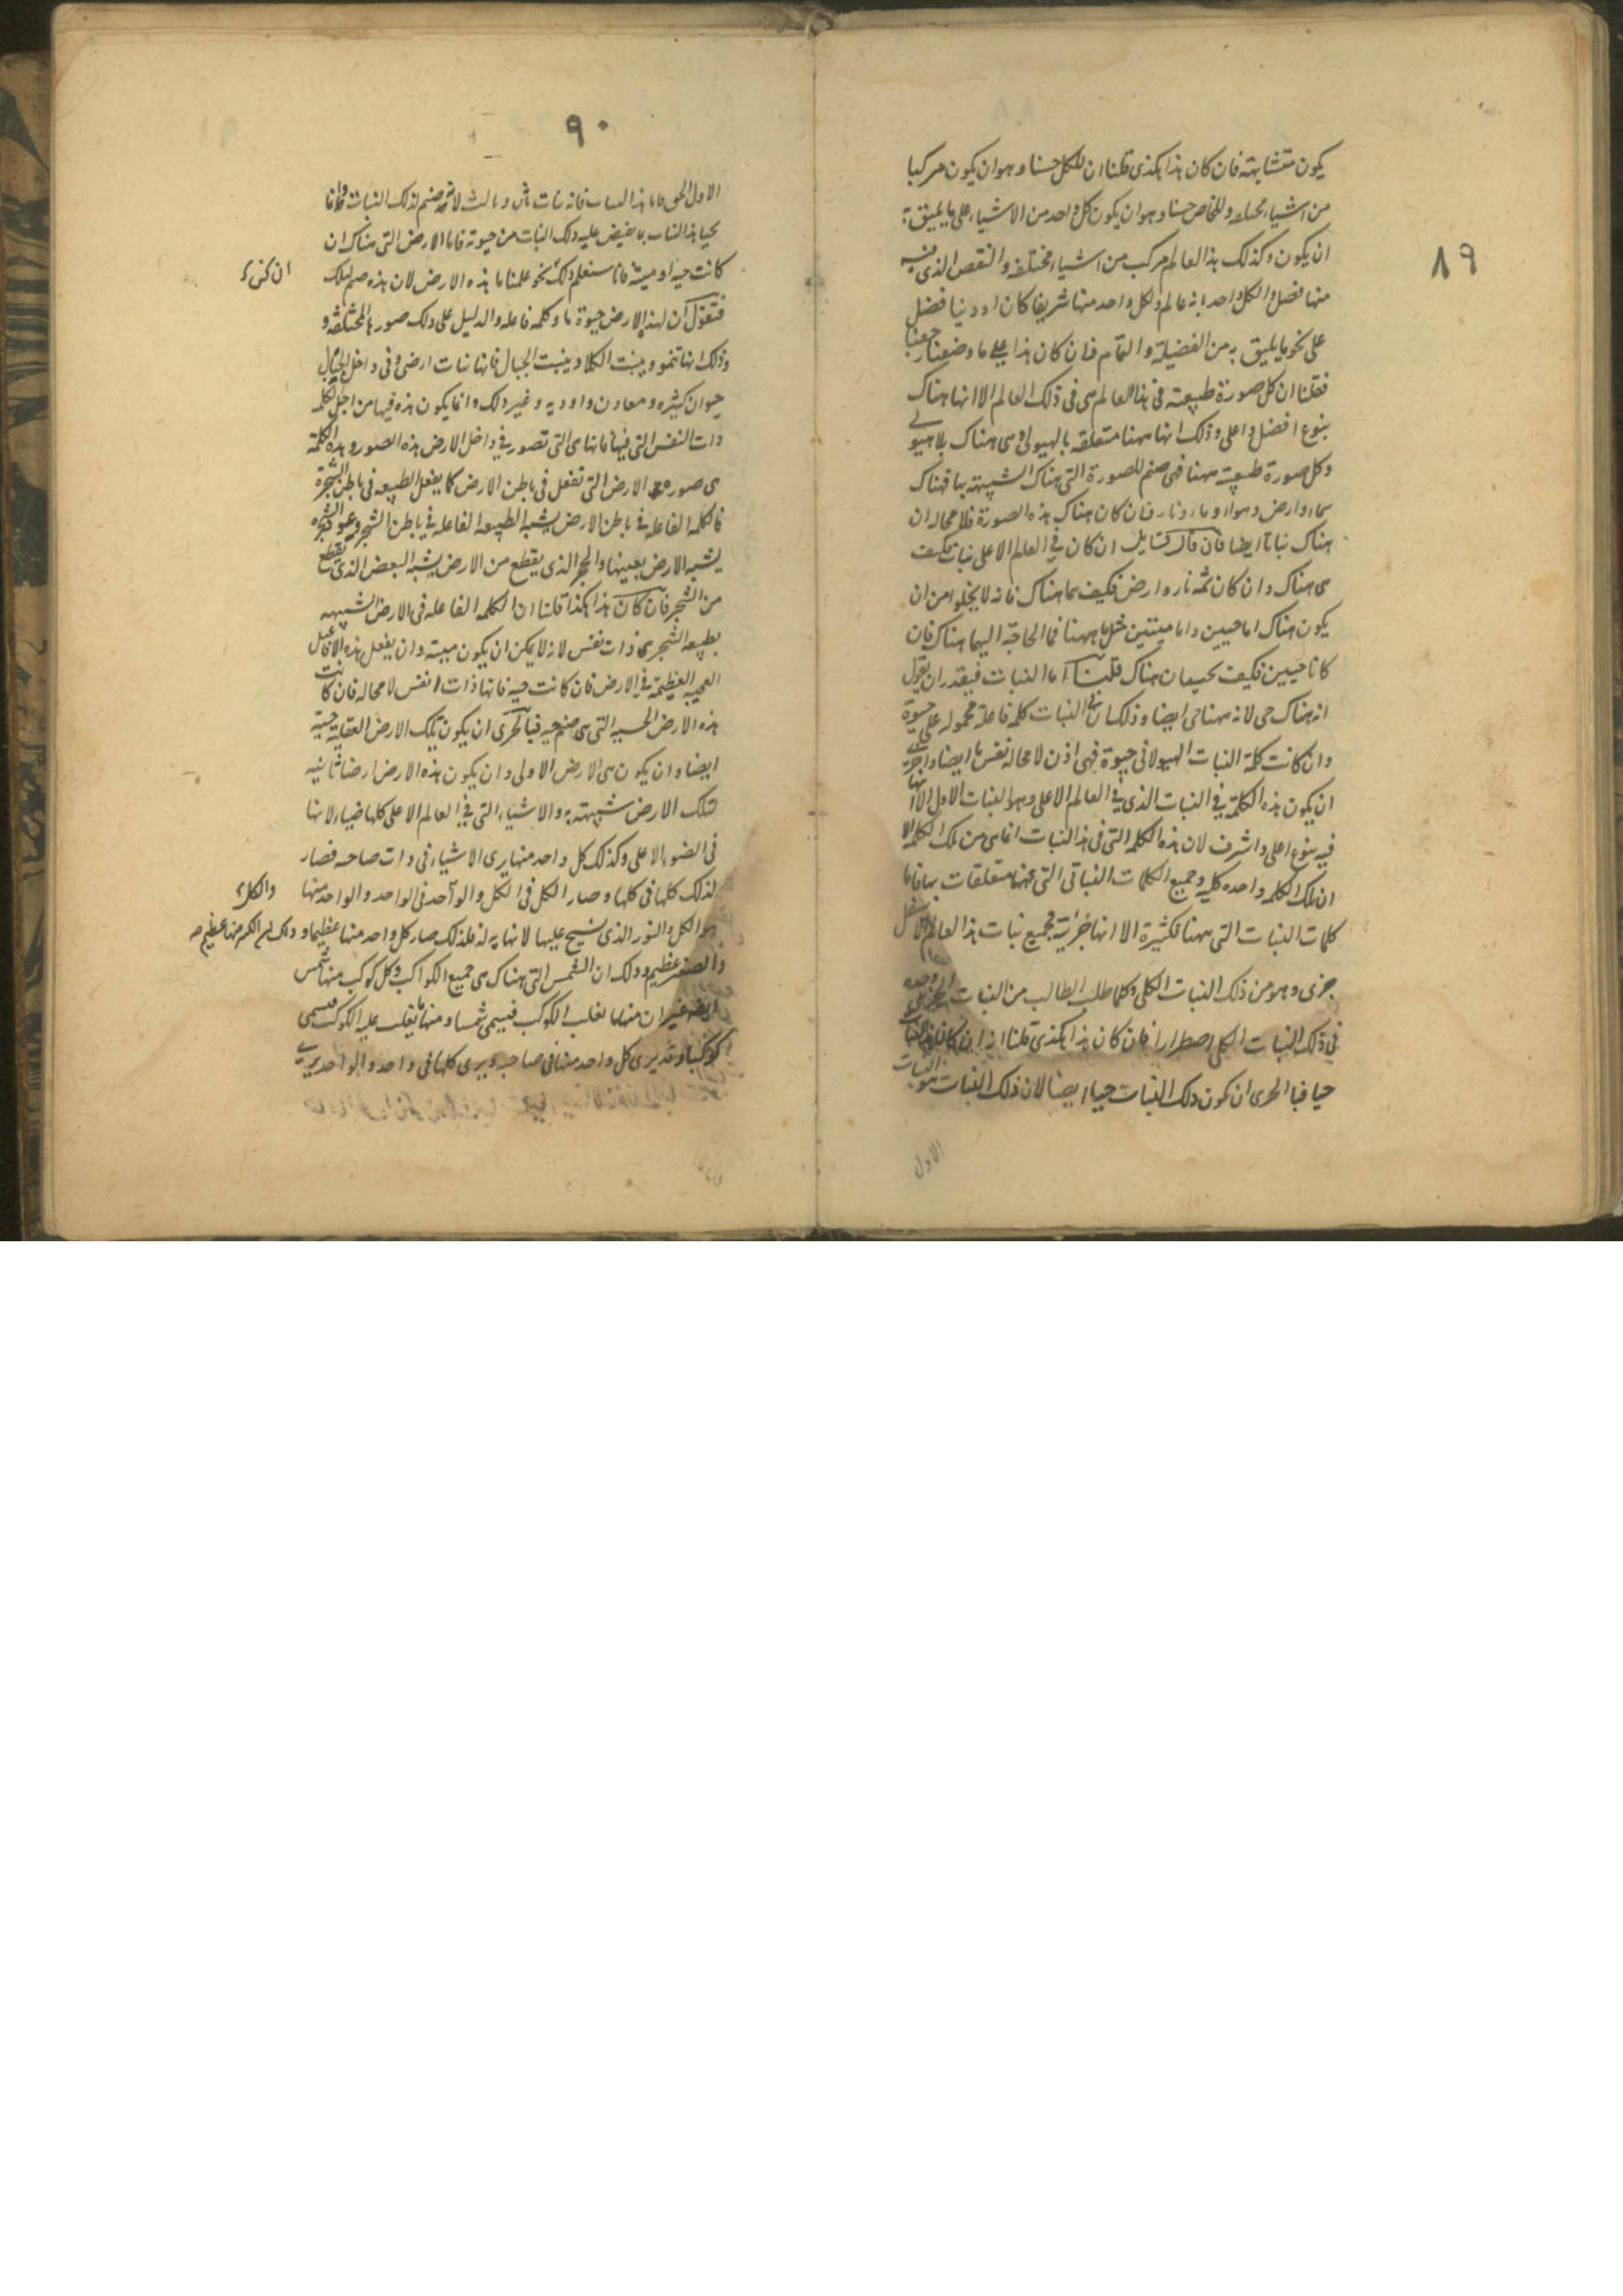 ٨٩
يكون متشابهة فان كان هذا هكذى قلنا ان للكل حسنا وهو ان يكون مركبا
من اشياء مختلفه وللخاص حسنا وهو ان يكون كل واحد من الاشياء على ما يليق به
ان يكون وكذلك هذا العالم مركب من اشياء مختلفه والنقص الذى فيه
منها فضل والكل واحد انه عالم ولكل واحد منها شريفا كان او دنيا فضل
على نحو ما يليق به من الفضيلة والتمام فان كان هذا على ما وضعنا رجعنا
فقلنا ان كل صورة طبيعية فى هذا العالم هى فى ذلك العالم الا انها هناك
بنوع افضل واعلى وذلك انها ههنا متعلقه بالهيولى وهى هناك بلا هيولى
وكل صورة طبيعية ههنا فهى صنم للصورة التى هناك الشبيهة بها فهناك
سماء وارض وهواء وماء ونار فان كان هناك هذه الصورة فلا محاله ان
هناك نباتا ايضا فان قال قايل ان كان فى العالم الاعلى نبات فكيف
هى هناك وان كان ثمه نار وارض فكيف هما هناك فانه لا يخلوا من ان
يكون هناك اما حيين واما ميتين مثل ما ههنا فما الحاجة اليهما هناك فان
كانا حيين فكيف يحييان هناك قلنا اما النبات فيقدر ان يقول
انه هناك حى لانه ههنا حى ايضا وذلك ان فى النبات كلمة فاعلة محمولة على حيوة
وان كانت كلمة النبات الهيولانى حيوة فهى اذن لا محاله نفس ما ايضا واحرى
ان يكون هذه الكلمة فى النبات الذى فى العالم الاعلى وهو النبات الاول الا انها
فيه بنوع اعلى واشرف لان هذه الكلمة التى فى هذا النبات انما هى من تلك الكلمة الا
ان تلك الكلمه واحده كليه وجميع الكلمات النباتى التى ههنا متعلقات بها فاما
كلمات النبات التى ههنا فكثيرة الا انها جزئية فجميع نبات هذا العالم الاسفل
جزى وهو من ذلك النبات الكلى وكلما طلب الطالب من النبات الجزى وجده
فى ذلك النبات الكلى اضطرارا فان كان هذا هكذى قلنا انه ان كان هذا النبات
حيا فبالحرى ان يكون ذلك النبات حيا ايضا لان ذلك النبات هو النبات
الاول
٩٠
الاول الحق فاما هذا النبات فانه نبات ثان وثالث لانه صنم لذلك النبات وانما
يحيا هذا النبات بما يفيض عليه ذلك النبات من حيوته فاما الارض التى هناك ان
كانت حيه او ميته فانا سنعلم ذلك نحو علمنا ما هذه الارض لان هذه صنم لتلك
فنقول ان لهذه الارض حيوة ما وكلمه فاعله والدليل على ذلك صورها المختلفه و
وذلك انها تنمو وينبت الكلا وينبت الجبال فانها نبات ارضى وفى داخل الجبال
حيوان كثيره ومعادن واوديه وغير ذلك وانما يكون هذه فيها من اجل الكلمه
ذات النفس التى فيها فانها هى التى تصور فى داخل الارض هذه الصور وهذه الكلمة
هى صورة الارض التى تفعل فى باطن الارض كما يفعل الطبيعه فى باطن الشجرة
فالكلمه الفاعله فى باطن الارض يشبه الطبيعه الفاعله فى باطن الشجر وعود الشجره
يشبه الارض بعينها والحجر الذى يقطع من الارض يشبه البعض الذى يقطع
من الشجر فان كان هذا هكذا قلنا ان الكلمه الفاعله فى الارض الشبيهه
بطبيعه الشجر هى ذات نفس لانه لا يمكن ان يكون ميته وان يفعل هذه الافاعيل
العجيبه العظيمة فى الارض فان كانت حيه فانها ذات نفس لا محاله فان كانت
هذه الارض الحسيه التى هى صنم حيه فبالحرى ان يكون تلك الارض العقلية حية
ايضا وان يكون هى الارض الاولى وان يكون هذه الارض ارضا ثانيه
لتلك الارض شبيهة به والاشياء التى فى العالم الاعلى كلها ضياء لانها
فى الضوء الاعلى وكذلك كل واحد منها يرى الاشياء فى ذات صاحبه فصار
لذلك كلها فى كلها وصار الكل فى الكل والواحد فى الواحد والواحد منها والكل
هو الكل والنور الذى يسيح عليها لا نهايه له فلذلك صار كل واحد منها عظيما
والصغير عظيم وذلك ان الشمس التى هناك هى جميع الكواكب وكل كوكب منها شمس
ايضا غير ان منها ما يغلب الكوكب فيسمى شمسا ومنها ما يغلب عليه الكوكب فيسمى
كوكبا وقد يرى كل واحد منها فى صاحبه ويرى كلها فى واحد والواحد يرى